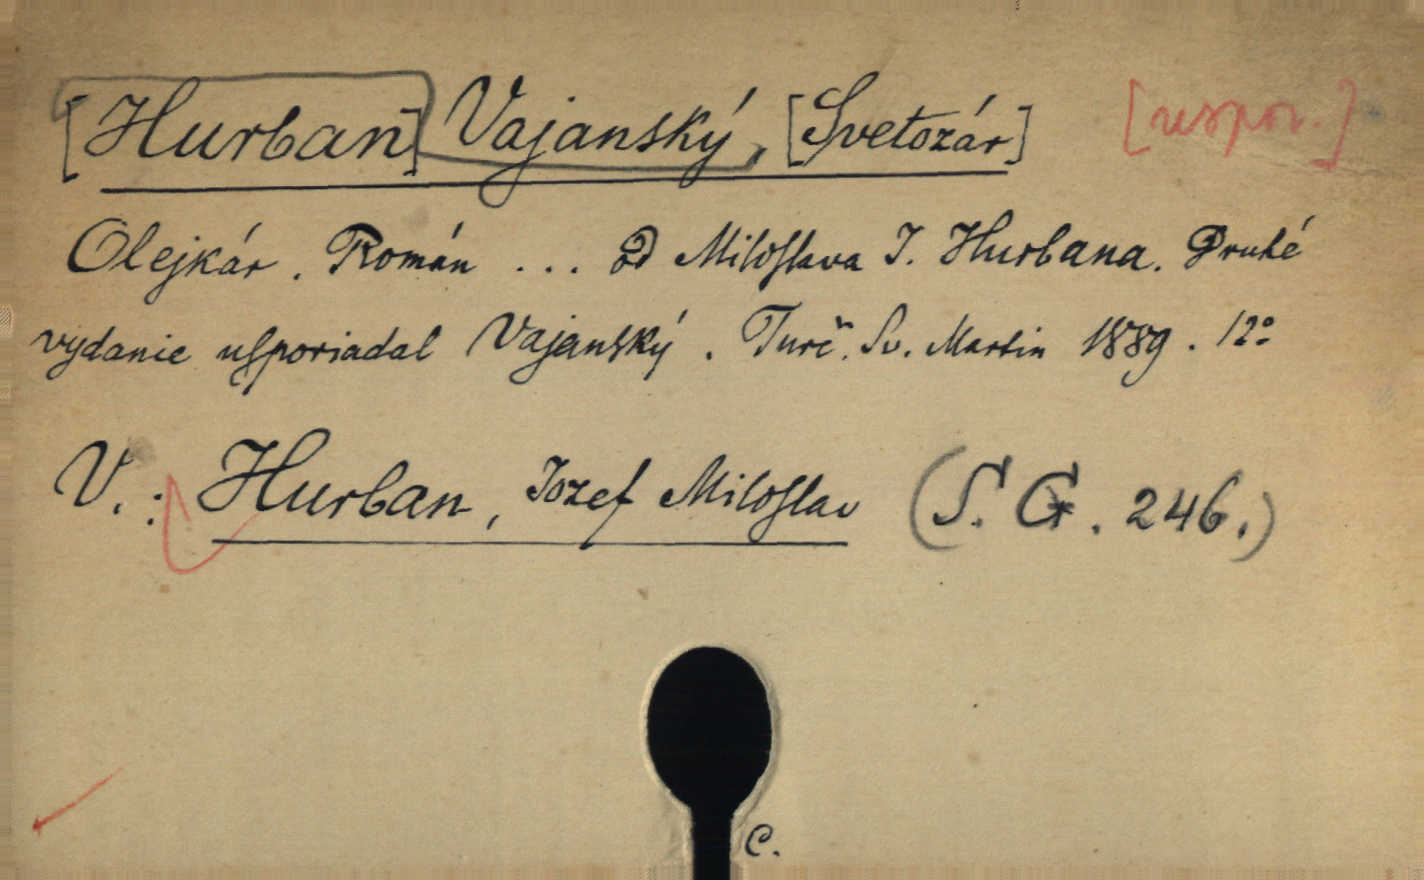 [Hurban] Vajanský, [Svetozár]
Olejkár. Román ... od Miloslava J. Hurbana. Druhé
vydanie usporiadal Vajanský. Turč. Sv. Martin 1889. 12°
V.: Hurban, Jozef Miloslav (S. G. 246.)
C.